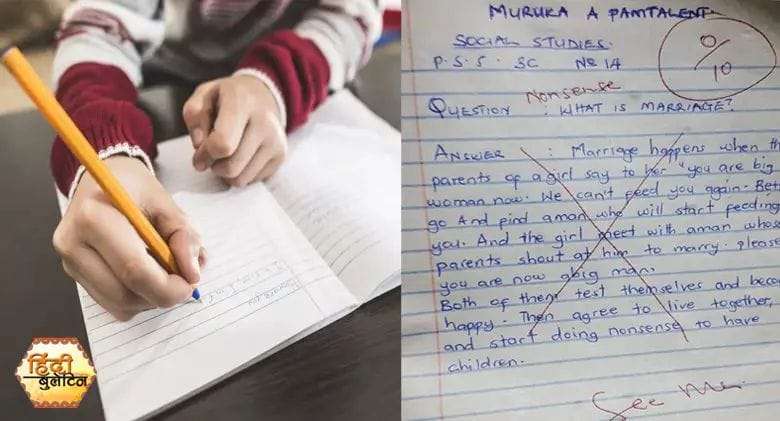 MURUKA A PAMTALENT.
SOCIAL STUDIES.
P.S.5. SC № 14
0/10
Nonsense
QUESTION : WHAT IS MARRIAGE?
ANSWER : Marriage happens when th
parents of a girl say to her "you are big
woman now. We can't feed you again. Bet
go And find aman who will start feeding
you. And the girl meet with aman whos
parents shout at him to marry. please
you are now abig man.
Both of them test themselves and beco
happy. Then agree to live together,
and start doing nonsense to have
children.
See Me.
हिंदी
बुलेटिन